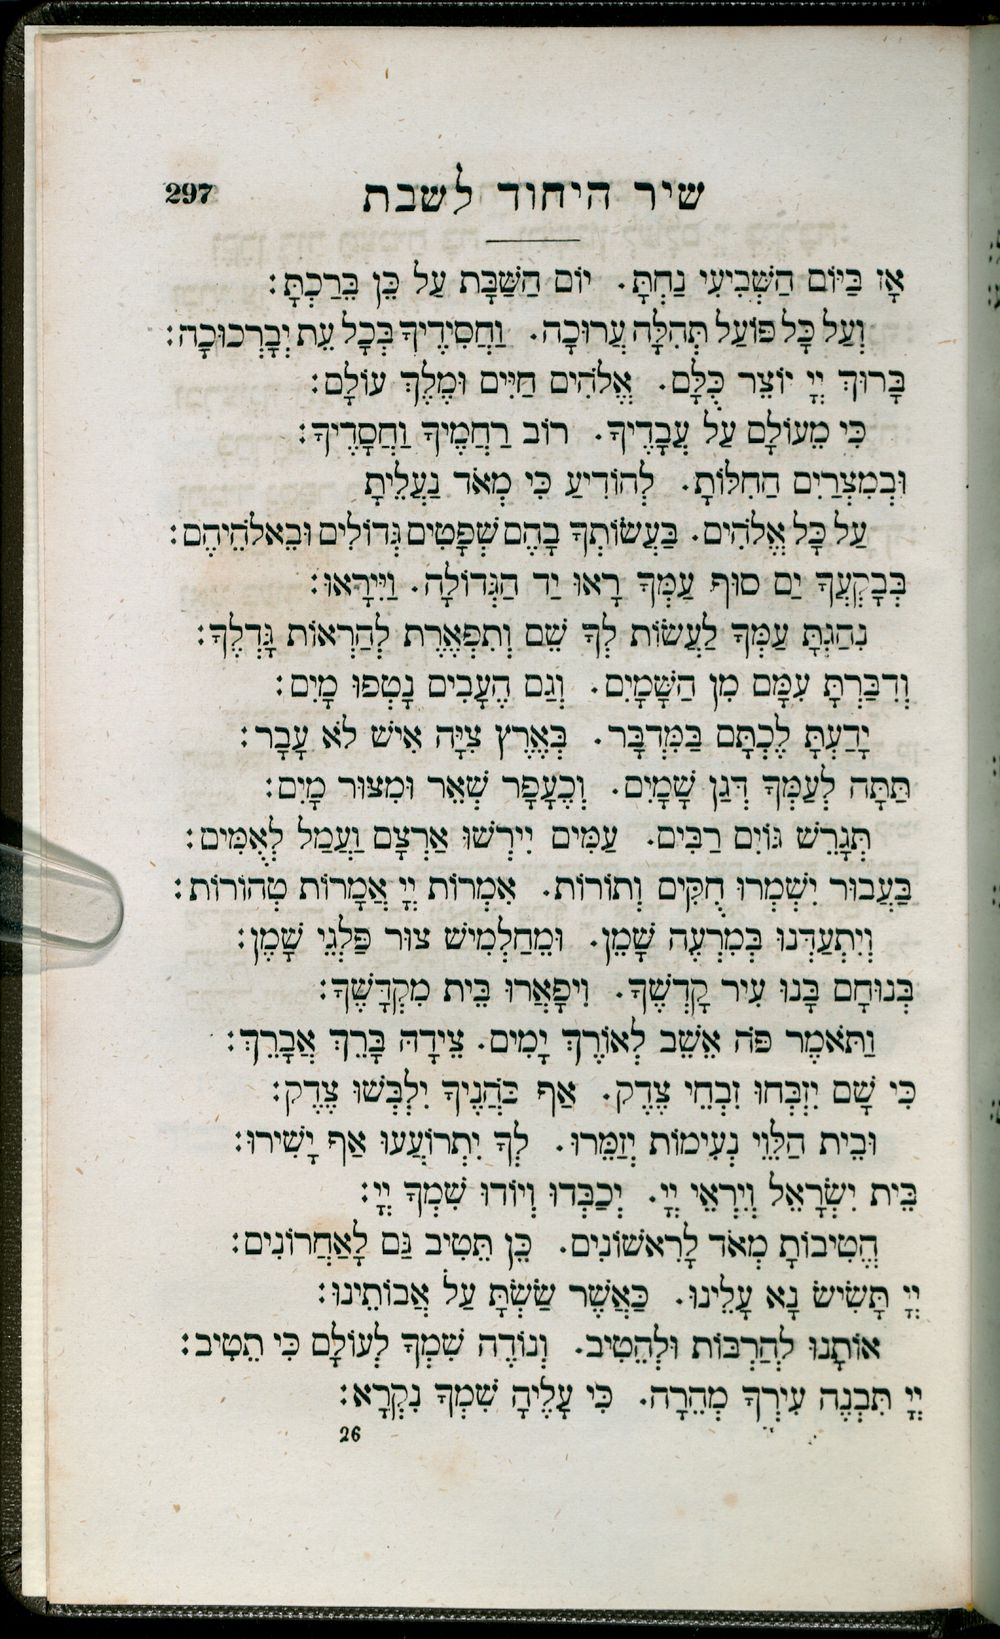 שיר היחוד לשבת 297
אָז בַּיּוֹם הַשְּׁבִיעִי נַחְתָּ. יוֹם הַשַּׁבָּת עַל כֵּן בֵּרַכְתָּ:
וְעַל כָּל פּוֹעַל תְּהִלָּה עֲרוּכָה. וַחֲסִידֶיךָ בְּכָל עֵת יְבָרְכוּכָה:
בָּרוּךְ יְיָ יוֹצֵר כֻּלָּם. אֱלֹהִים חַיִּים וּמֶלֶךְ עוֹלָם:
כִּי מֵעוֹלָם עַל עֲבָדֶיךָ. רוֹב רַחֲמֶיךָ וַחֲסָדֶיךָ:
וּבְמִצְרַיִם הַחִלּוֹתָ. לְהוֹדִיעַ כִּי מְאֹד נַעֲלֵיתָ
עַל כָּל אֱלֹהִים. בַּעֲשׂוֹתְךָ בָהֶם שְׁפָטִים גְּדוֹלִים וּבֵאלֹהֵיהֶם:
בְּבָקְעֲךָ יַם סוּף עַמְּךָ רָאוּ יַד הַגְּדוֹלָה. וַיִּירָאוּ:
נִהַגְתָּ עַמְּךָ לַעֲשׂוֹת לְךָ שֵׁם וְתִפְאֶרֶת לְהַרְאוֹת גָּדְלֶךָ:
וְדִבַּרְתָּ עִמָּם מִן הַשָּׁמָיִם. וְגַם הֶעָבִים נָטְפוּ מָיִם:
יָדַעְתָּ לֶכְתָּם בַּמִּדְבָּר. בְּאֶרֶץ צִיָּה אִישׁ לֹא עָבָר:
תַּתָּה לְעַמְּךָ דְּגַן שָׁמָיִם. וְכֶעָפָר שְׁאֵר וּמִצּוּר מָיִם:
תְּגָרֵשׁ גּוֹיִם רַבִּים. עַמִּים יִירְשׁוּ אַרְצָם וַעֲמַל לְאֻמִּים:
בַּעֲבוּר יִשְׁמְרוּ חֻקִּים וְתוֹרוֹת. אִמְרוֹת יְיָ אֲמָרוֹת טְהוֹרוֹת:
וְיִתְעַדְּנוּ בְּמִרְעֶה שָׁמֵן. וּמֵחַלְמִישׁ צוּר פַּלְגֵי שָׁמֶן:
בְּנוּחָם בָּנוּ עִיר קָדְשֶׁךָ. וִיפָאֲרוּ בֵּית מִקְדָּשֶׁךָ:
וַתֹּאמֶר פֹּה אֵשֵׁב לְאוֹרֶךְ יָמִים. צֵידָהּ בָּרֵךְ אֲבָרֵךְ:
כִּי שָׁם יִזְבְּחוּ זִבְחֵי צֶדֶק. אַף כֹּהֲנֶיךָ יִלְבְּשׁוּ צֶדֶק:
וּבֵית הַלֵּוִי נְעִימוֹת יְזַמֵּרוּ. לְךָ יִתְרוֹעֲעוּ אַף יָשִׁירוּ:
בֵּית יִשְׂרָאֵל וְיִרְאֵי יְיָ. יְכַבְּדוּ וְיוֹדוּ שִׁמְךָ יְיָ:
הֱטִיבוֹתָ מְאֹד לָרִאשׁוֹנִים. כֵּן תֵּטִיב גַּם לָאַחֲרוֹנִים:
יְיָ תָּשִׂישׂ נָא עָלֵינוּ. כַּאֲשֶׁר שַׂשְׂתָּ עַל אֲבוֹתֵינוּ:
אוֹתָנוּ לְהַרְבּוֹת וּלְהֵטִיב. וְנוֹדֶה שִׁמְךָ לְעוֹלָם כִּי תֵטִיב:
יְיָ תִּבְנֶה עִירְךָ מְהֵרָה. כִּי עָלֶיהָ שִׁמְךָ נִקְרָא:
26